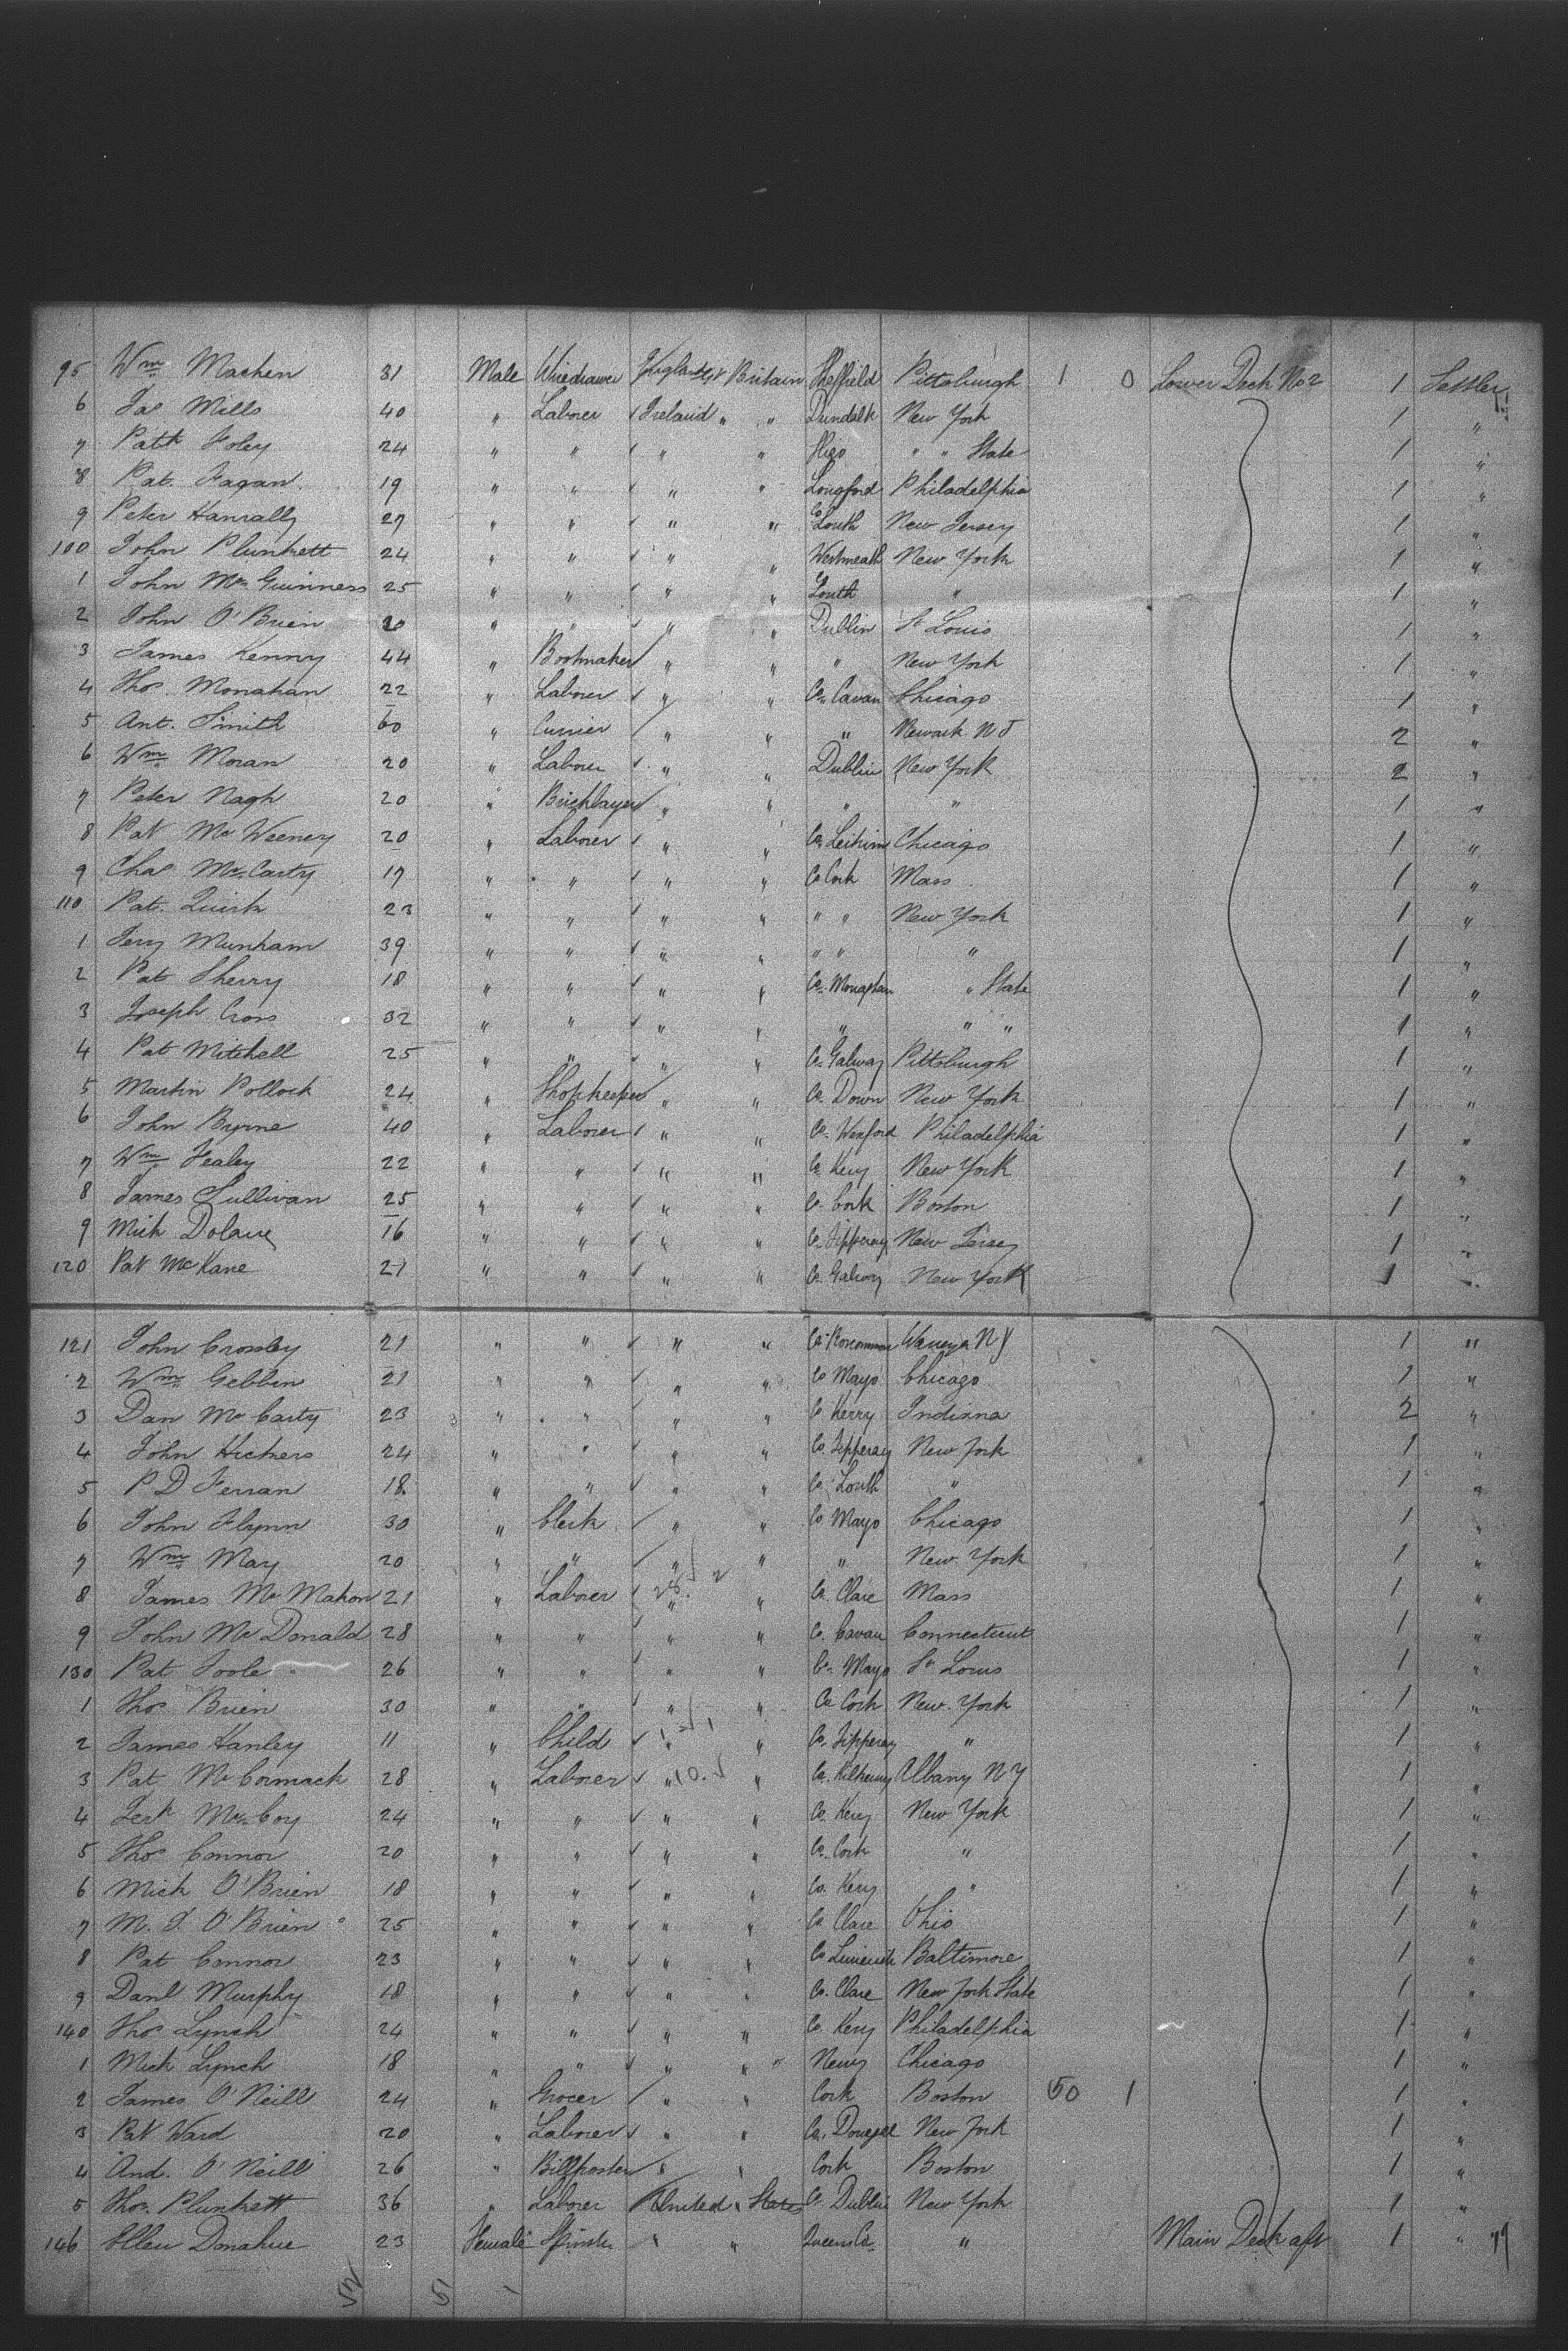 95 Wm Machen 31 Male Wiredrawer England Gt Britain Sheffield Pittsburgh 1 0 Lower Deck No 2 1 Settler
6 Jas Mills 40 " Laborer Ireland " " Dundalk New York 1 "
7 Patk Foley 24 " " " " Sligo " " State 1 "
8 Pat. Fagan 19 " " " " Longford Philadelphia 1 "
9 Peter Hanrally 27 " " " " Co Louth New Jersey 1 "
100 John Plunkett 24 " " " " Westmeath New York 1 "
1 John McGuinness 25 " " " " Co Louth " 1 "
2 John O'Brien 20 " " " " Dublin St Louis 1 "
3 James Kenny 44 " Bootmaker " " " New York 1 "
4 Thos Monahan 22 " Laborer " " Co. Cavan Chicago 1 "
5 Ant. Smith 60 " Currier " " " Newark NJ 2 "
6 Wm Moran 20 " Laborer " " Dublin New York 2 "
7 Peter Nagh 20 " Bricklayer " " " " 1 "
8 Pat McWeeney 20 " Laborer " " Co. Leitrim Chicago 1 "
9 Chas McCarty 17 " " " " Co Cork Mass 1 "
110 Pat. Quirk 23 " " " " " " New York 1 "
1 Jerry Munham 39 " " " " " " " 1 "
2 Pat Sherry 18 " " " " Co. Monaghan " State 1 "
3 Joseph Cross 32 " " " " " " " 1 "
4 Pat Mitchell 25 " " " " Co. Galway Pittsburgh 1 "
5 Martin Pollock 24 " Shopkeeper " " Co. Down New York 1 "
6 John Byrne 40 " Laborer " " Co. Wexford Philadelphia 1 "
7 Wm Fealey 22 " " " " Co Kerry New York 1 "
8 James Sullivan 25 " " " " Co. Cork Boston 1 "
9 Mick Dolane 16 " " " " Co. Tipperary New Jersey 1 "
120 Pat McKane 21 " " " " Co. Galway New York 1 "
121 John Crossley 21 " " " " Co. Roscommon NY 1 "
2 Wm Gebbin 21 " " " " Co Mayo Chicago 1 "
3 Dan McCarty 23 " " " " Co Kerry Indiana 2 "
4 John Hickners 24 " " " " Co. Tipperary New York 1 "
5 P D Ferran 18 " " " " Co Louth " 1 "
6 John Flynn 30 " Clerk " " Co. Mayo Chicago 1 "
7 Wm May 20 " " " " " New York 1 "
8 James McMahon 21 " Laborer " " Co. Clare Mass 1 "
9 John McDonald 28 " " " " Co. Cavan Connecticut 1 "
130 Pat Toole 26 " " " " Co. Mayo St Louis 1 "
1 Thos Brien 30 " " " " Co Cork New York 1 "
2 James Hanley 11 " Child " " Co. Tipperary " 1 "
3 Pat McCormack 28 " Laborer " 10. " Co. Kilkenny Albany NY 1 "
4 Jerh McCoy 24 " " " " Co. Kerry New York 1 "
5 Thos Connor 20 " " " " Co. Cork " 1 "
6 Mick O'Brien 18 " " " " Co. Kerry " 1 "
7 M. J. O'Brien 25 " " " " Co. Clare Ohio 1 "
8 Pat Connor 23 " " " " Co Limerick Baltimore 1 "
9 Danl Murphy 18 " " " " Co. Clare New York State 1 "
140 Thos Lynch 24 " " " " Co. Kerry Philadelphia 1 "
1 Mick Lynch 18 " " " " Newry Chicago 1 "
2 James O'Neill 24 " Grocer " " Cork Boston 50 1 1 "
3 Pat Ward 20 " Laborer " " Co. Donegal New York 1 "
4 And. O'Neill 26 " Billposter " " Cork Boston 1 "
5 Thos. Plunkett 36 " Laborer United States Co. Dublin New York 1 "
146 Ellen Donahue 23 Female Spinster " " Queens Co. " Main Deck aft 1 "